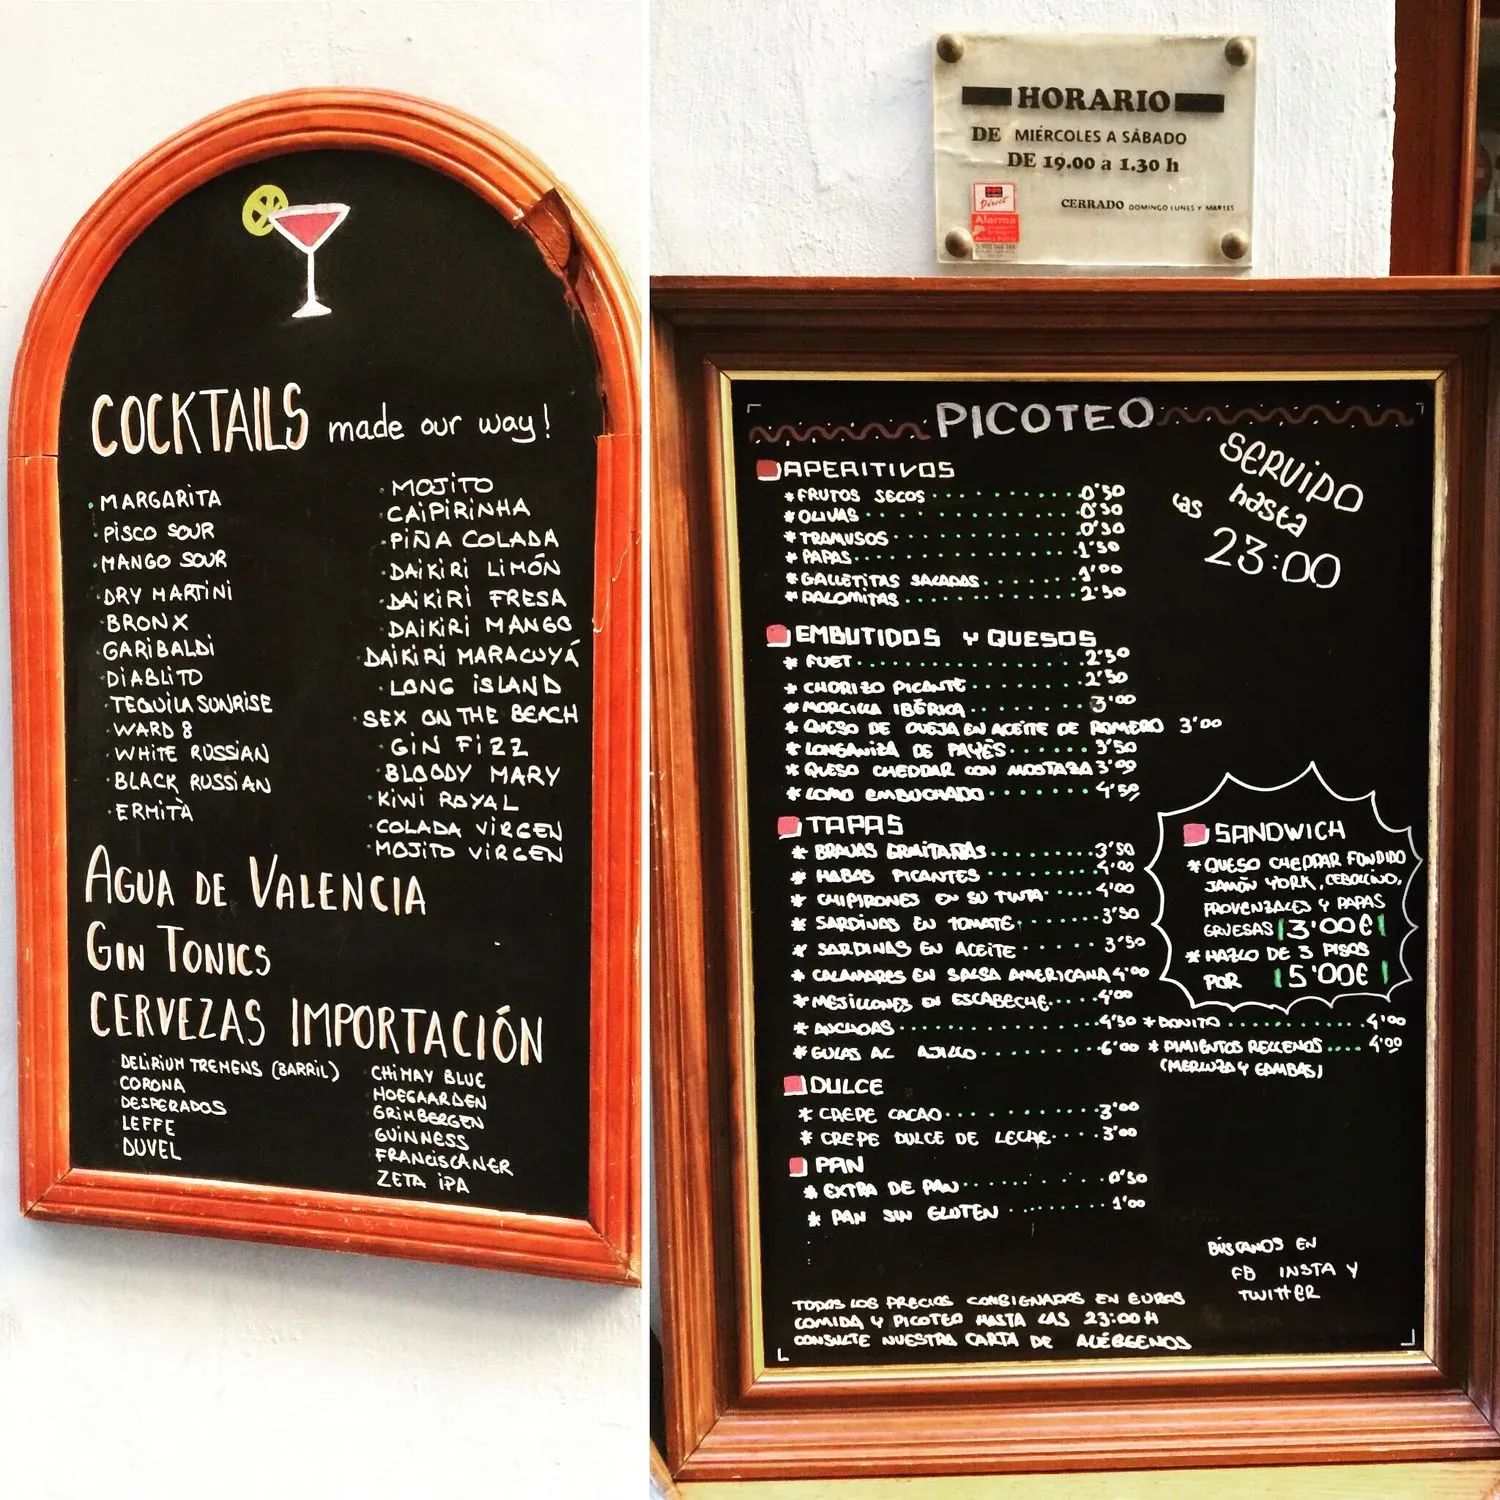 COCKTAILS made our way!
MARGARITA
PISCO SOUR
MANGO SOUR
DRY MARTINI
BRONX
GARIBALDI
DIABLITO
TEQUILA SUNRISE
WARD 8
WHITE RUSSIAN
BLACK RUSSIAN
ERMITÀ
MOJITO
CAIPIRINHA
PIÑA COLADA
DAIKIRI LIMÓN
DAIKIRI FRESA
DAIKIRI MANGO
DAIKIRI MARACUYÁ
LONG ISLAND
SEX ON THE BEACH
GIN FIZZ
BLOODY MARY
KIWI ROYAL
COLADA VIRGEN
MOJITO VIRGEN
AGUA DE VALENCIA
GIN TONICS
CERVEZAS IMPORTACIÓN
DELIRIUM TREMENS (BARRIL)
CORONA
DESPERADOS
LEFFE
DUVEL
CHIMAY BLUE
HOEGAARDEN
GRIMBERGEN
GUINNESS
FRANCISCANER
ZETA IPA
HORARIO
DE MIÉRCOLES A SÁBADO
DE 19.00 a 1.30 h
CERRADO DOMINGO LUNES Y MARTES
Direct
Alarma
PICOTEO
SERVIDO
hasta
las
23:00
APERITIVOS
* FRUTOS SECOS 0'50
* OLIVAS 0'50
* TRAMUSOS 0'50
* PAPAS 1'50
* GALLETITAS SALADAS 1'00
* PALOMITAS 2'50
EMBUTIDOS Y QUESOS
* FUET 2'50
* CHORIZO PICANTE 2'50
* MORCILLA IBÉRICA 3'00
* QUESO DE OVEJA EN ACEITE DE ROMERO 3'00
* LONGANIZA DE PAYÉS 3'50
* QUESO CHEDDAR CON MOSTAZA 3'00
* LOMO EMBUCHADO 4'50
TAPAS
* BRAVAS ERMITAÑAS 3'50
* HABAS PICANTES 4'00
* CHIPIRONES EN SU TINTA 4'00
* SARDINAS EN TOMATE 3'50
* SARDINAS EN ACEITE 3'50
* CALAMARES EN SALSA AMERICANA 4'00
* MEJILLONES EN ESCABECHE 4'00
* ANCHOAS 4'50
* GULAS AL AJILLO 6'00
* BONITO 4'00
* PIMIENTOS RELLENOS 4'00
(MERLUZA Y GAMBAS)
SANDWICH
* QUESO CHEDDAR FUNDIDO
JAMÓN YORK, CEBOLLINO,
PROVENZALES Y PAPAS
GRUESAS 3'00€
* HAZLO DE 3 PISOS
POR 5'00€
DULCE
* CREPE CACAO 3'00
* CREPE DULCE DE LECHE 3'00
PAN
* EXTRA DE PAN 0'50
* PAN SIN GLUTEN 1'00
BÚSCANOS EN
FB INSTA Y
TWITTER
TODOS LOS PRECIOS CONSIGNADOS EN EUROS
COMIDA Y PICOTEO HASTA LAS 23:00H
CONSULTE NUESTRA CARTA DE ALÉRGENOS